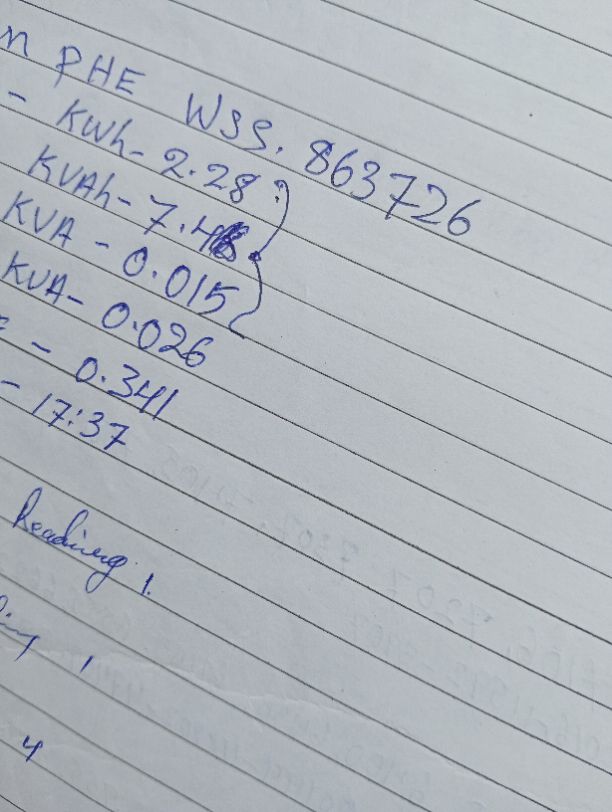 n PHE WSS. 863726
- KWh- 2.28
KVAh- 7.48
KVA - 0.015
KVA- 0.026
- 0.341
- 17:37
Reading 1.
4